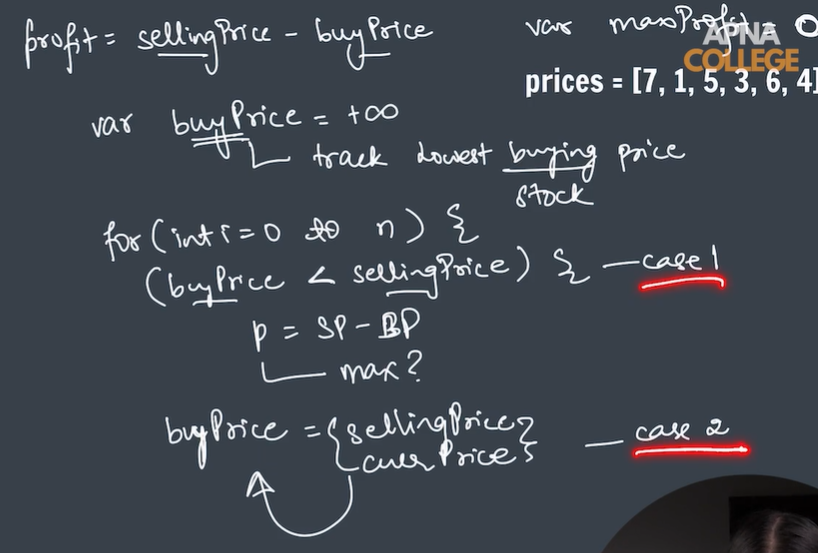 profit = sellingPrice - buyPrice
var maxProfit = 0
APNA
COLLEGE
prices = [7, 1, 5, 3, 6, 4]
var buyPrice = +∞
track lowest buying price
stock
for (int i = 0 to n) {
(buyPrice < sellingPrice) { — case 1
p = SP - BP
max?
buyPrice = { sellingPrice } — case 2
currPrice